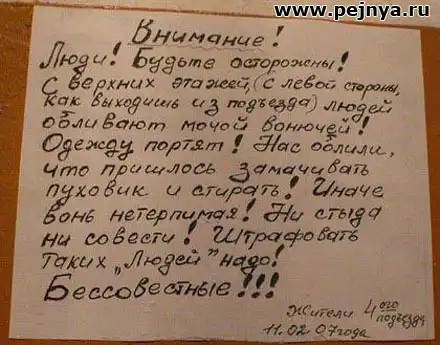 www.pejnya.ru
Внимание!
Люди! Будьте осторожны!
С верхних этажей, (с левой стороны,
как выходишь из подъезда) людей
обливают мочой вонючей!
Одежду портят! Нас облили,
что пришлось замачивать
пуховик и стирать! Иначе
вонь нетерпимая! Ни стыда
ни совести! Штрафовать
таких „Людей” надо!
Бессовестные!!!
Жители 4ого
подъезда
11.02.07года